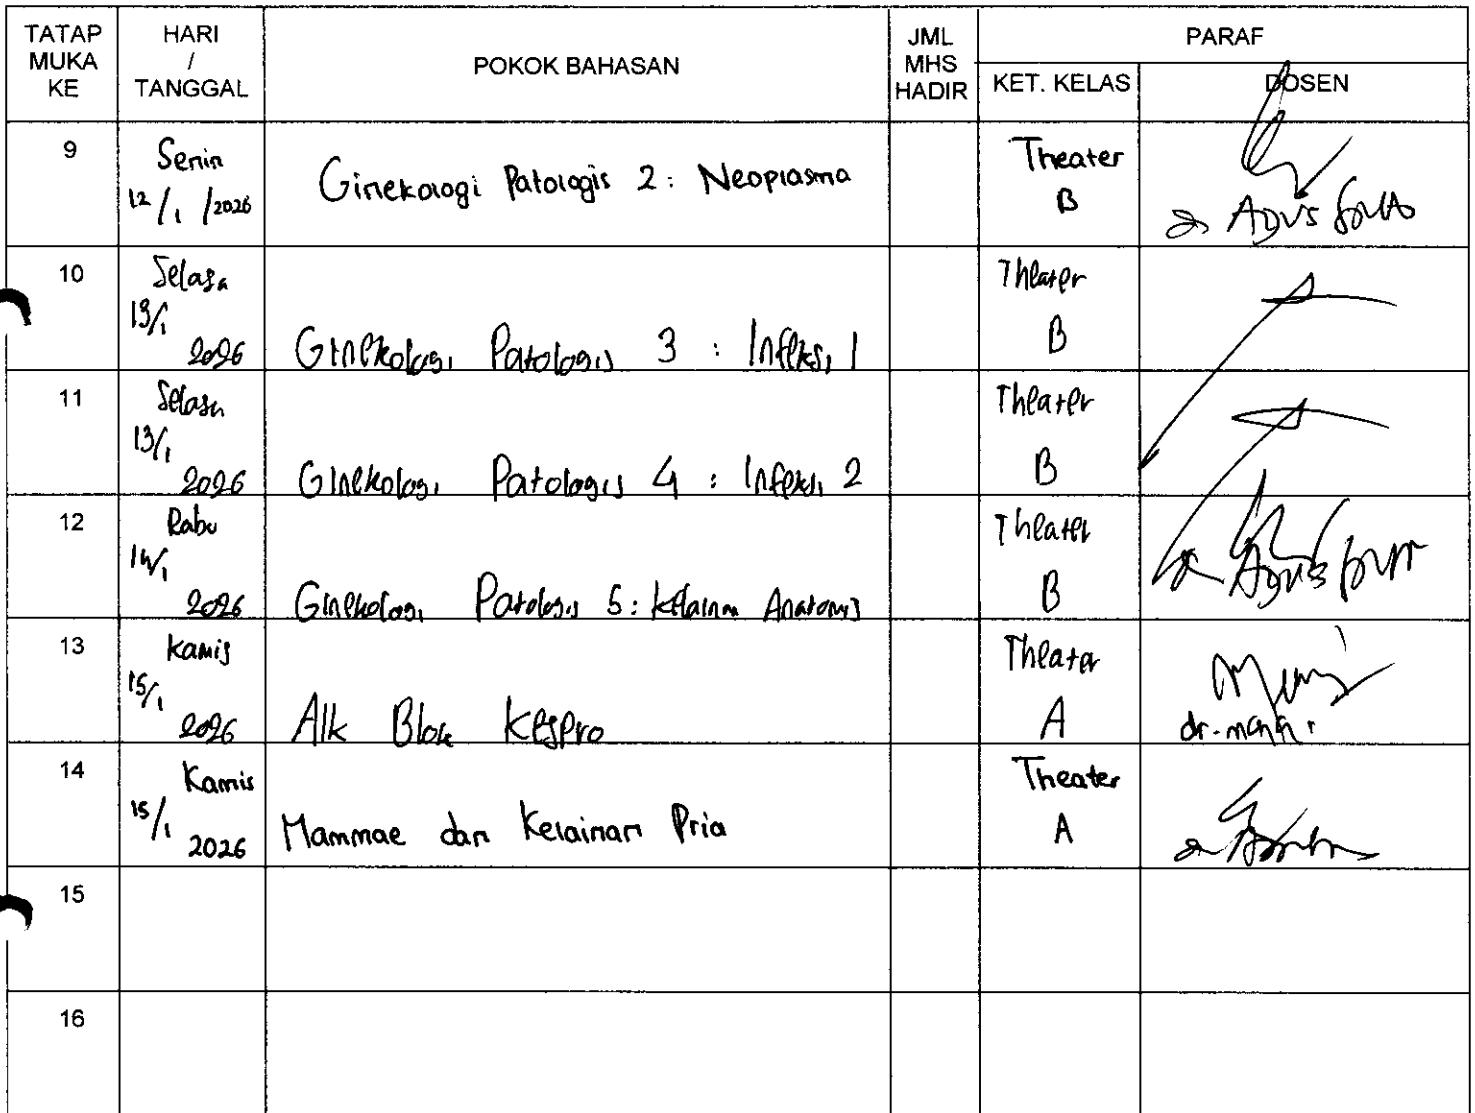 TATAP MUKA KE
HARI / TANGGAL
POKOK BAHASAN
JML MHS HADIR
PARAF
KET. KELAS
DOSEN
9
Senin
12/1/2026
Ginekologi Patologis 2 : Neoplasma
Theater
B
10
Selasa
13/1
2026
Ginekologi Patologis 3 : Infeksi 1
Theater
B
11
Selasa
13/1
2026
Ginekologi Patologis 4 : Infeksi 2
Theater
B
12
Rabu
14/1
2026
Ginekologi Patologis 5 : Kelainan Anatomi
Theater
B
13
Kamis
15/1
2026
Alk Blok Kespro
Theater
A
14
Kamis
15/1
2026
Mammae dan Kelainan Pria
Theater
A
15
16